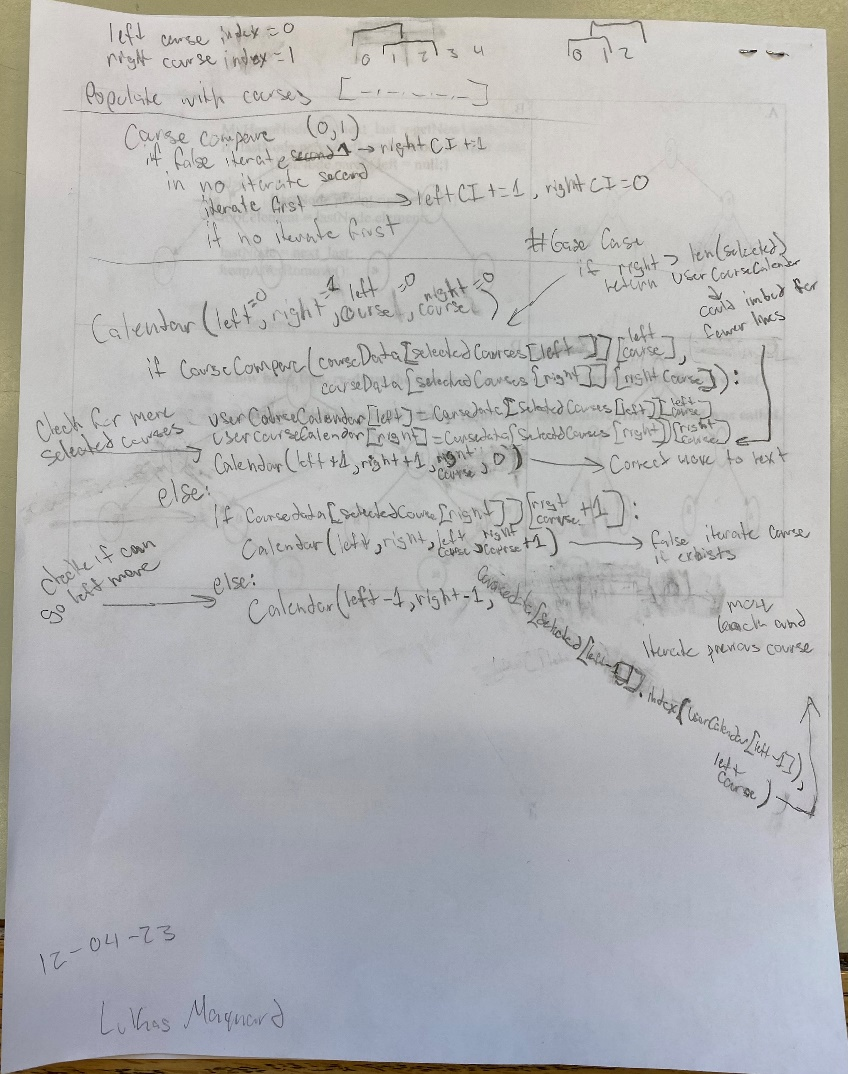 left course index = 0
right course index = 1
0 1 2 3 4
0 1 2
Populate with courses [_,_,_,_,_]
Course compare (0,1)
if false iterate second 1 → right CI +=1
in no iterate second
iterate first → left CI += 1, right CI = 0
if no iterate first
#Base Case
if right > len(selected)
return userCourseCalendar
could imbed for
fewer lines
Calendar(left=0, right=1, left course=0, right course=0)
if CourseCompare(courseData[selectedCourses[left]][left course],
courseData[selectedCourses[right]][right course]):
Check for more
selected courses
userCourseCalendar[left] = coursedata[selectedCourses[left]][left course]
usercourseCalendar[right] = coursedata[selectedCourses[right]][right course]
Calendar(left+1, right+1, right course, 0) → Correct move to next
else:
if Coursedata[selectedCourse[right]][right course +1]:
Calendar(left, right, left course, right course +1) → false iterate course
if exists
Check if can
go left more
else:
Calendar(left-1, right-1, coursedata[selected[left-1]].index(userCalendar[left-1]), left course)
move
back and
iterate previous course
12-04-23
Lukas Maynard